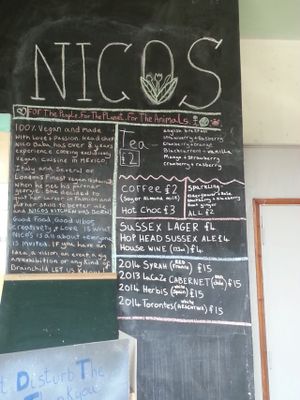 NICOS
For The People. For The Planet. For The Animals.
100% Vegan and made
with Love & Passion. Head chef
Nico has over 8 years
experience cooking
Vegan cuisine in Mexico
Italy and Several of
London's Finest
when he met his partner
She decided to
quit her career in Fashion and
joined Nico to better
and NICOS KITCHEN WAS BORN!
Good Food, Good vibes
Creativity & Love is what
Nico's is all about - everyone
is invited. If you have an
idea, a vision, an event, a gig
an exhibition or any kind of
Brainchild LET US KNOW
Tea
£2
English breakfast
Strawberry + Raspberry
Cranberry + Orange
+ vanilla
Mango + Strawberry
Cranberry + raspberry
COFFEE £2
(Soy or Almond milk)
Hot Choc £3
Sparkling
ALL £2
SUSSEX LAGER £4
HOP HEAD SUSSEX ALE £4
House WINE £4
2014 SYRAH (RED FRANCE) £15
2013 LaCaZa CABERNET (RED) £15
2014 Herbis £15
2014 Torontes (WHITE ARGENTINA) £15
DISTURB THE
Thankyou